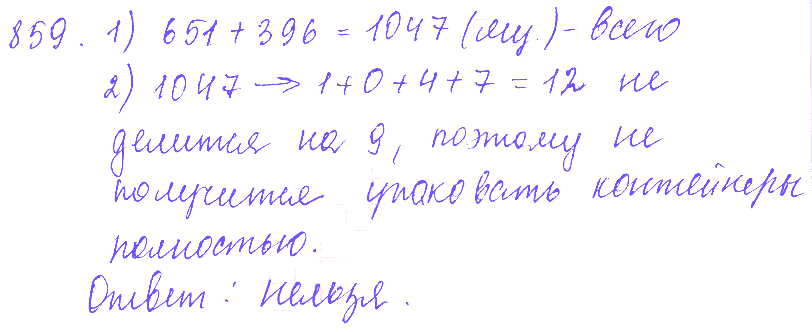 859. 1) 651 + 396 = 1047 (ящ.) - всего
2) 1047 → 1+0+4+7 = 12 не
делится на 9, поэтому не
получится упаковать контейнеры
полностью.
Ответ: нельзя.